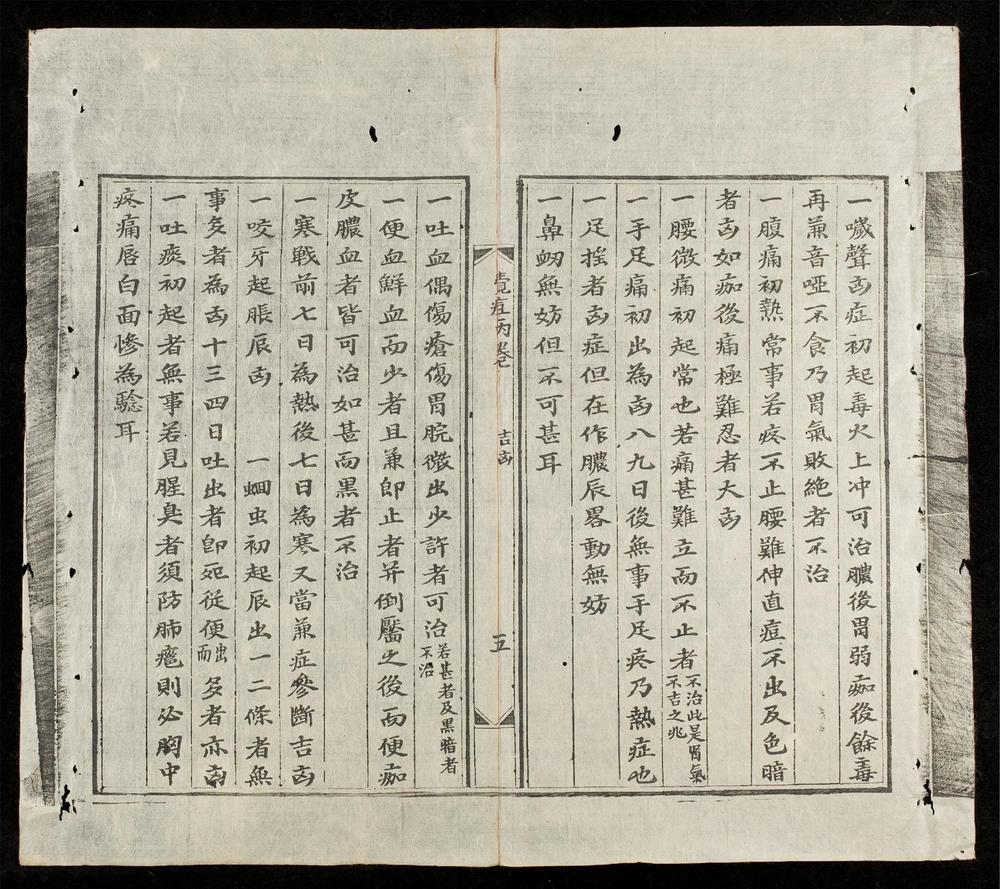 一噦聲凶症初起毒火上冲可治膿後胃弱痂後餘毒
再兼音啞不食乃胃氣敗絶者不治
一腹痛初熱常事若疼不止腰難伸直痘不出反色暗
者凶如痂後痛極難忍者大凶
一腰微痛初起常也若痛甚難立而不止者不治此是腎氣不吉之兆
一手足痛初出為凶八九日後無事手足疼乃熱症也
一足摇者凶症但在作膿辰畧動無妨
一鼻衂無妨但不可甚耳
痘丙卷
吉凶
五
一吐血偶傷瘡傷胃脘微出少許者可治若甚者及黒暗者不治
一便血鮮血而少者且兼即止者并倒靨之後而便痂
皮膿血者皆可治如甚而黒者不治
一寒戦前七日為熱後七日為寒又當兼症參斷吉凶
一咬牙起脹辰凶 一蛔虫初起辰出一二條者無
事多者為凶十三四日吐出者即死從便出而多者亦凶
一吐痰初起者無事若見腥臭者須防肺癰則必胸中
疼痛唇白面惨為騐耳